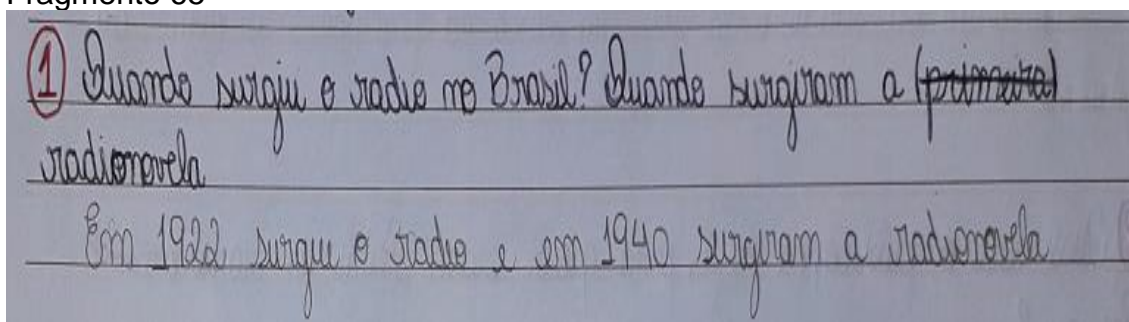 ① Quando surgiu o radio no Brasil? Quando surgiram a (primeira)
radionovela
Em 1922 surgiu o radio e em 1940 surgiram a radionovela